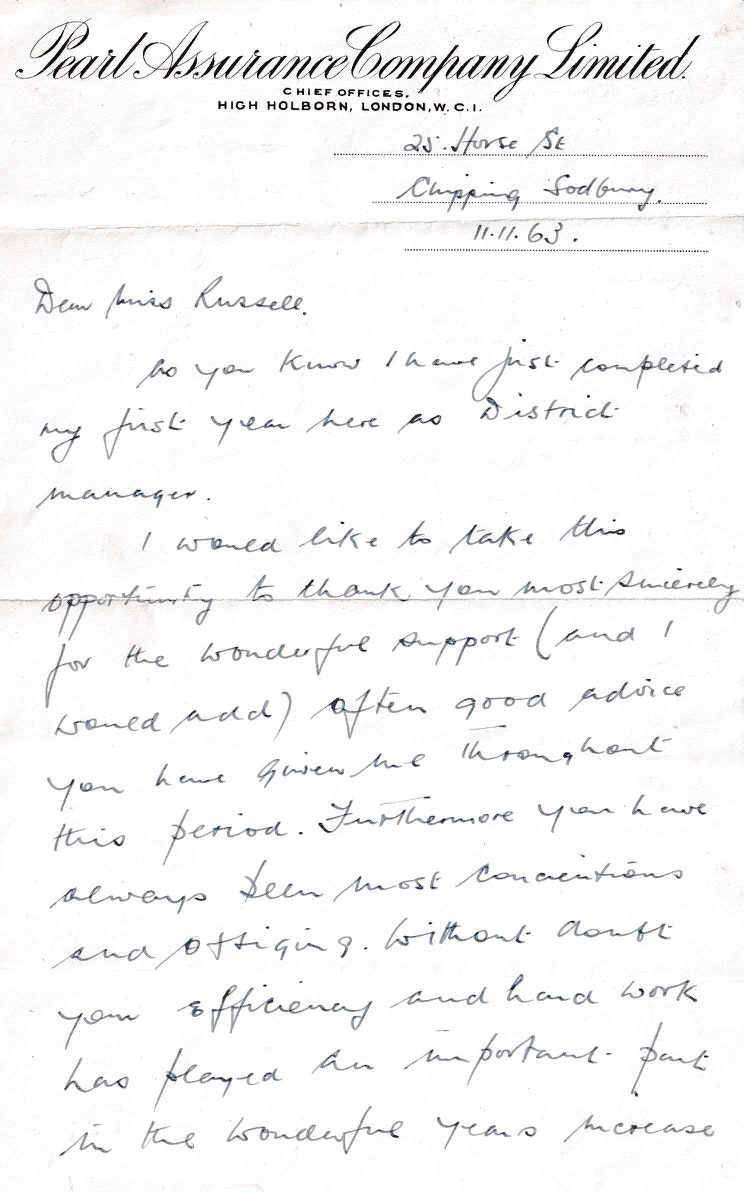 Pearl Assurance Company Limited.
CHIEF OFFICES,
HIGH HOLBORN, LONDON, W.C.1.
25. Horse St
Chipping Sodbury.
11.11.63.
Dear Miss Russell.
As you know I have just completed
my first year here as District
manager.
I would like to take this
opportunity to thank you most sincerely
for the wonderful support (and I
would add) often good advice
you have given me throughout
this period. Furthermore you have
always been most concientious
and obliging. Without doubt
your efficiency and hard work
has played an important part
in the wonderful years increase